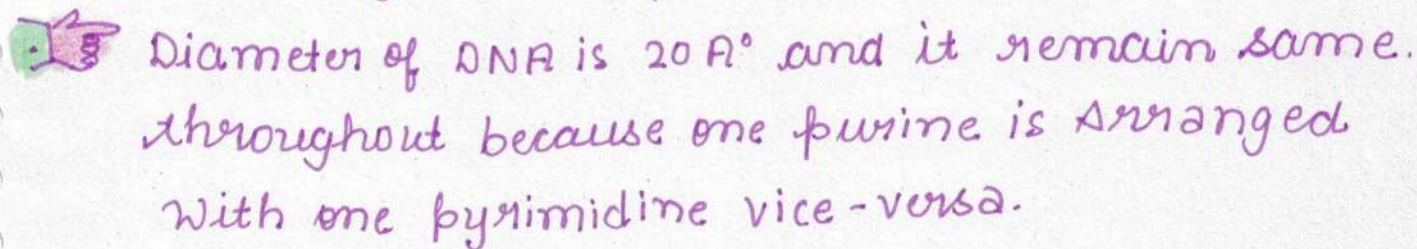 Diameter of DNA is 20 A° and it remain same.
throughout because one purine is Arranged
with one pyrimidine vice-versa.